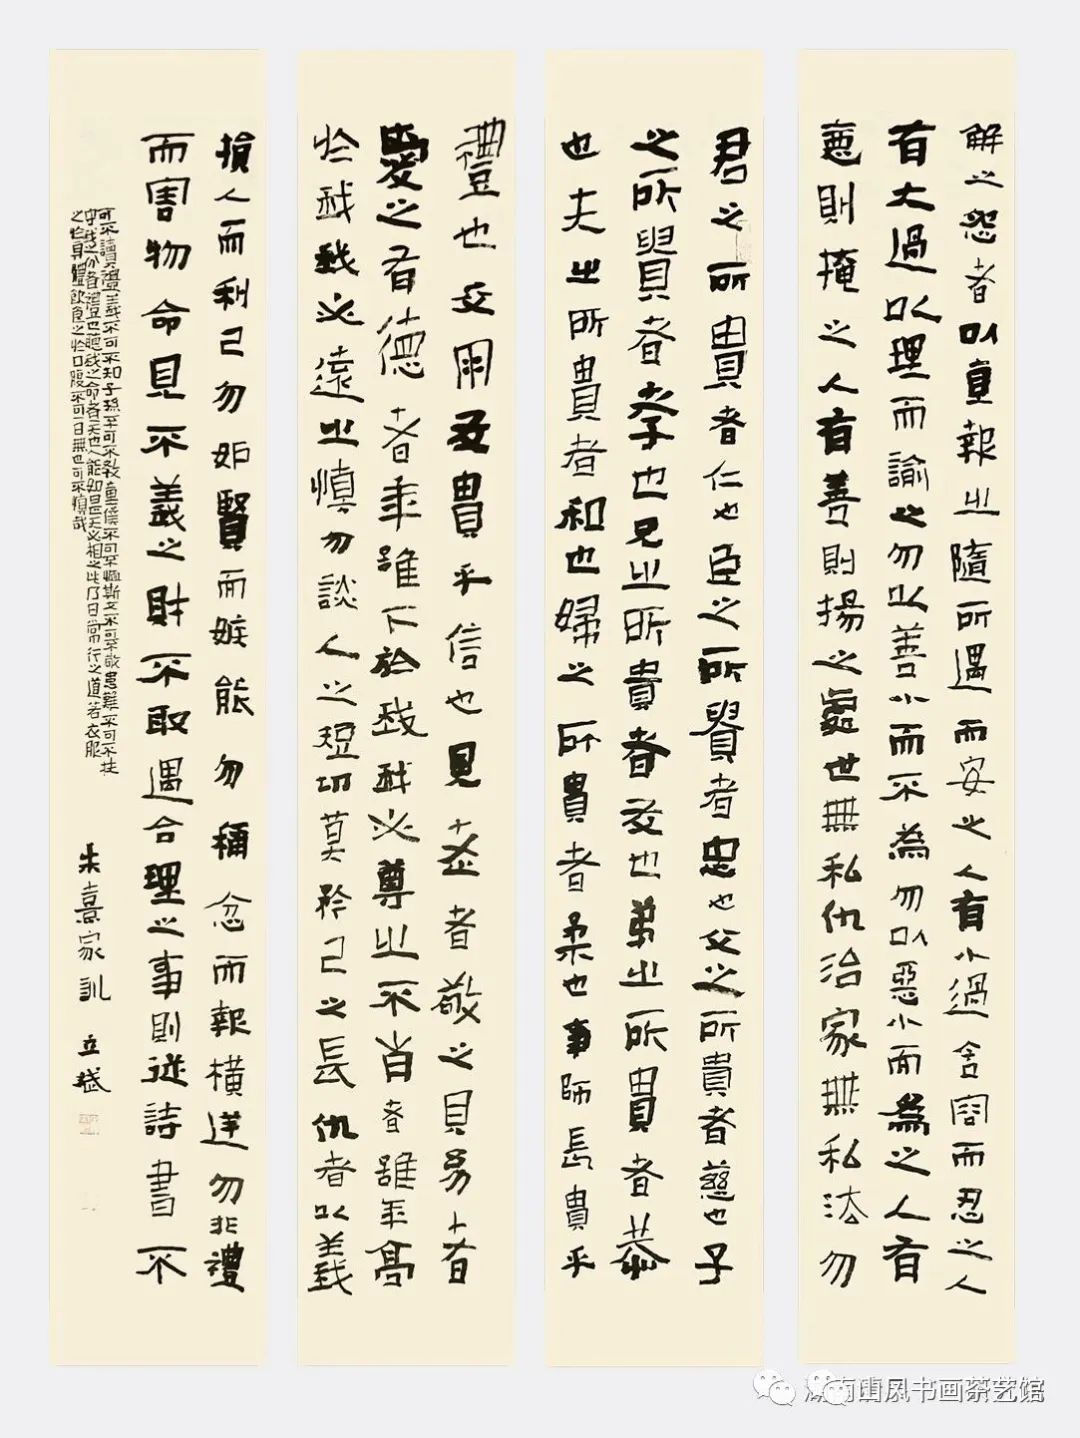 解之怨者以直報之隨所遇而安之人有小過含容而忍之人
有大過以理而諭之勿以善小而不為勿以惡小而為之人有
惡則掩之人有善則揚之處世無私仇治家無私法勿
君之所貴者仁也臣之所貴者忠也父之所貴者慈也子
之所貴者孝也兄之所貴者友也弟之所貴者恭
也夫之所貴者和也婦之所貴者柔也事師長貴乎
禮也交朋友貴乎信也見老者敬之見幼者
愛之有德者年雖下於我我必尊之不肖者雖年高
於我我必遠之慎勿談人之短切莫矜己之長仇者以義
損人而利己勿妒賢而嫉能勿稱忿而報橫逆勿非禮
而害物命見不義之財不取遇合理之事則從詩書不
可不讀禮義不可不知子孫不可不教童僕不可不恤斯文不可不敬患難不可不扶
守我之分者禮也聽我之命者天也人能如是天必相之此乃日常行之道若衣服
之於身體飲食之於口腹不可一日無也可不慎哉
朱熹家訓 立
风书画茶艺馆